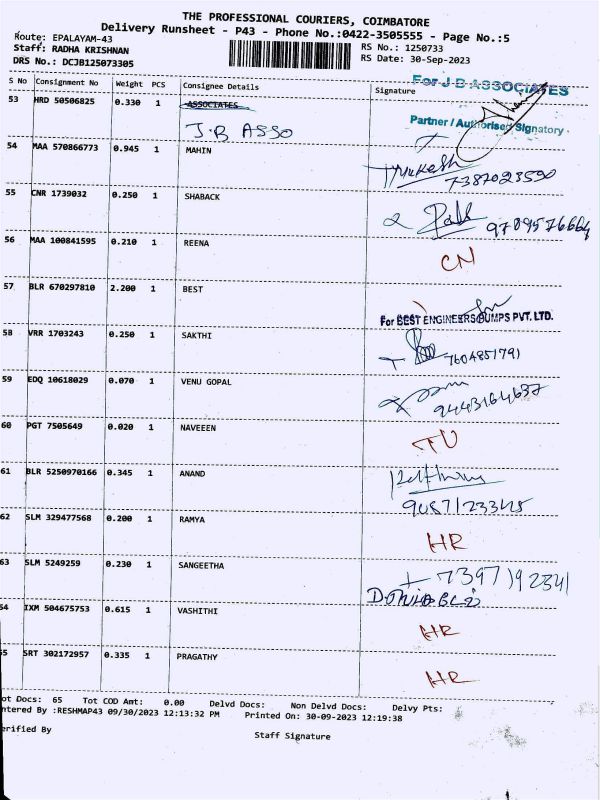 THE PROFESSIONAL COURIERS, COIMBATORE
Delivery Runsheet - P43 - Phone No.:0422-3505555 - Page No.:5
Route: EPALAYAM-43
Staff: RADHA KRISHNAN RS No.: 1250733
DRS No.: DCJB125073305 RS Date: 30-Sep-2023
S No Consignment No Weight PCS Consignee Details Signature
For J B ASSOCIATES
53 HRD 50506825 0.330 1 ASSOCIATES
J.B ASSO Partner / Authorised Signatory
54 MAA 570866773 0.945 1 MAHIN
7387023590
55 CNR 1739032 0.250 1 SHABACK
9789576664
56 MAA 100841595 0.210 1 REENA
CN
57 BLR 670297810 2.200 1 BEST
For BEST ENGINEERS PUMPS PVT. LTD.
58 VRR 1703243 0.250 1 SAKTHI
7604851791
59 EDQ 10618029 0.070 1 VENU GOPAL
9443164637
60 PGT 7505649 0.020 1 NAVEEEN
TU
61 BLR 5250970166 0.345 1 ANAND
62 SLM 329477568 0.200 1 RAMYA
HR
63 SLM 5249259 0.230 1 SANGEETHA
7397192341
54 IXM 504675753 0.615 1 VASHITHI
HR
55 SRT 302172957 0.335 1 PRAGATHY
HR
ot Docs: 65 Tot COD Amt: 0.00 Delvd Docs: Non Delvd Docs: Delvy Pts:
ntered By :RESHMAP43 09/30/2023 12:13:32 PM Printed On: 30-09-2023 12:19:38
erified By
Staff Signature